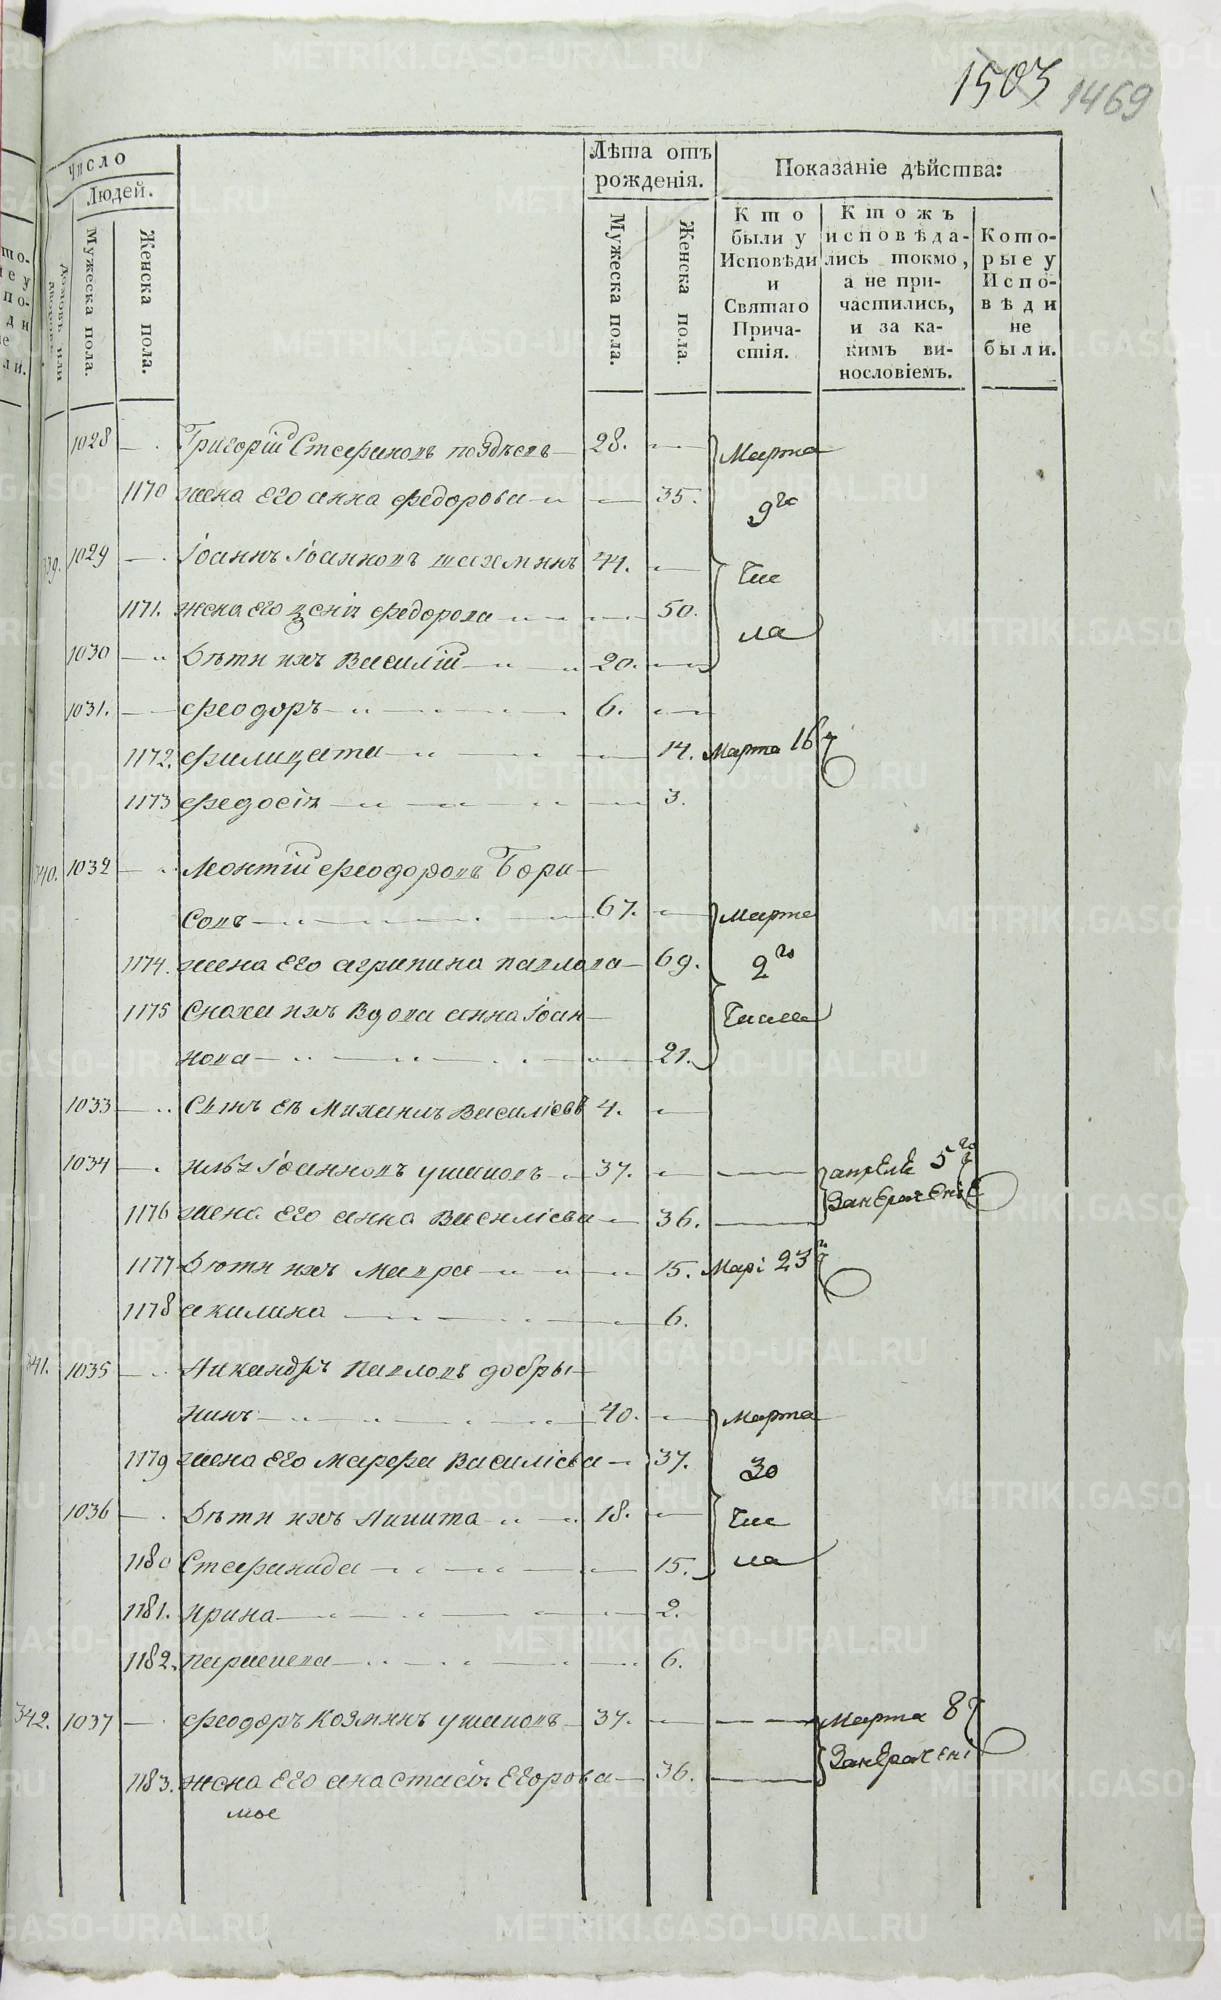 1503 1469
Число Людей.
Мужеска пола.
Женска пола.
Лѣта отъ рожденія.
Мужеска пола.
Женска пола.
Показаніе дѣйства:
Кто были у Исповѣди и Святаго Причастія.
Ктожъ исповѣдались токмо, а не причастились, и за какимъ винословіемъ.
Которые у Исповѣди не были.
1028 Григорій Стефановъ 28. Марта
1170 жена его анна федорова 35. 9го
339. 1029 Іоаннъ Іоанновъ шахминъ 44. Чис
1171. жена его ѯенія федорова 50. ла
1030 Дѣти ихъ Василій 20.
1031. феодоръ 6.
1172. филицата 14. Марта 16
1173 федосія 3.
340. 1032 Леонтій феодоровъ Бори
совъ 67. Марта
1174. жена его агрипина павлова 69. 9го
1175 Сноха ихъ вдова анна Іоан
нова 21. Числа
1033 Сынъ ея Михаилъ Василіевъ 4.
1034 илья Іоанновъ ушаковъ 37. апреля 5го
1176 жена его анна Василіева 36.
1177 Дѣти ихъ Мавра 15. Мар 23
1178 акилина 6.
341. 1035 Никандръ павловъ добры
нинъ 40. Марта
1179 жена его марфа Василіева 37. 30
1036 Дѣти ихъ Никита 18. Чис
1180 Стефанида 15. ла
1181. ирина 2.
1182. параскева 6.
342. 1037 феодоръ козминъ ушаковъ 37. Марта 8
1183. жена его анастасія Егорова 36.
METRIKI.GASO-URAL.RU